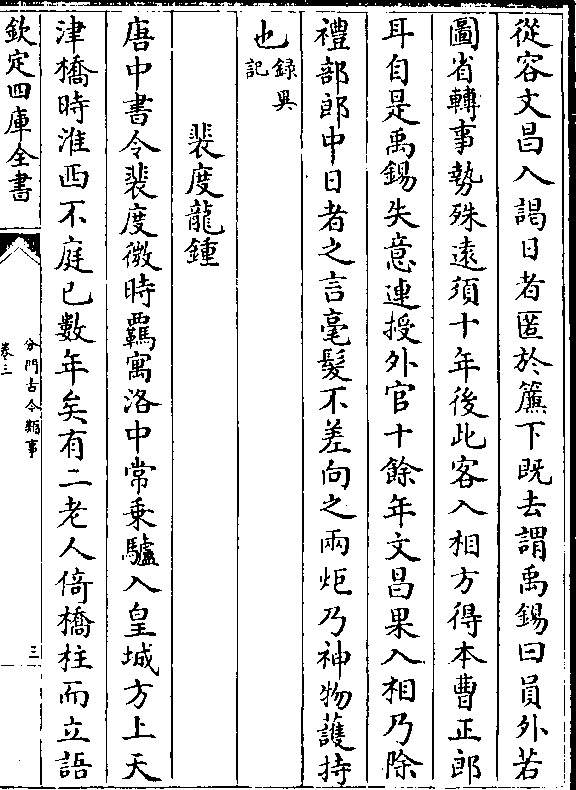 從容文昌入謁日者匿於簾下既去謂禹錫曰員外若
圖省轉事勢殊遠須十年後此客入相方得本曹正郎
耳自是禹錫失意連授外官十餘年文昌果入相乃除
禮部郎中日者之言毫髮不差向之兩炬乃神物護持
也録異記
裴度龍鍾
唐中書令裴度微時羈寓洛中常乗驢入皇城方上天
津橋時淮西不庭已數年矣有二老人倚橋柱而立語
欽定四庫全書
分門古今類事
卷三
三